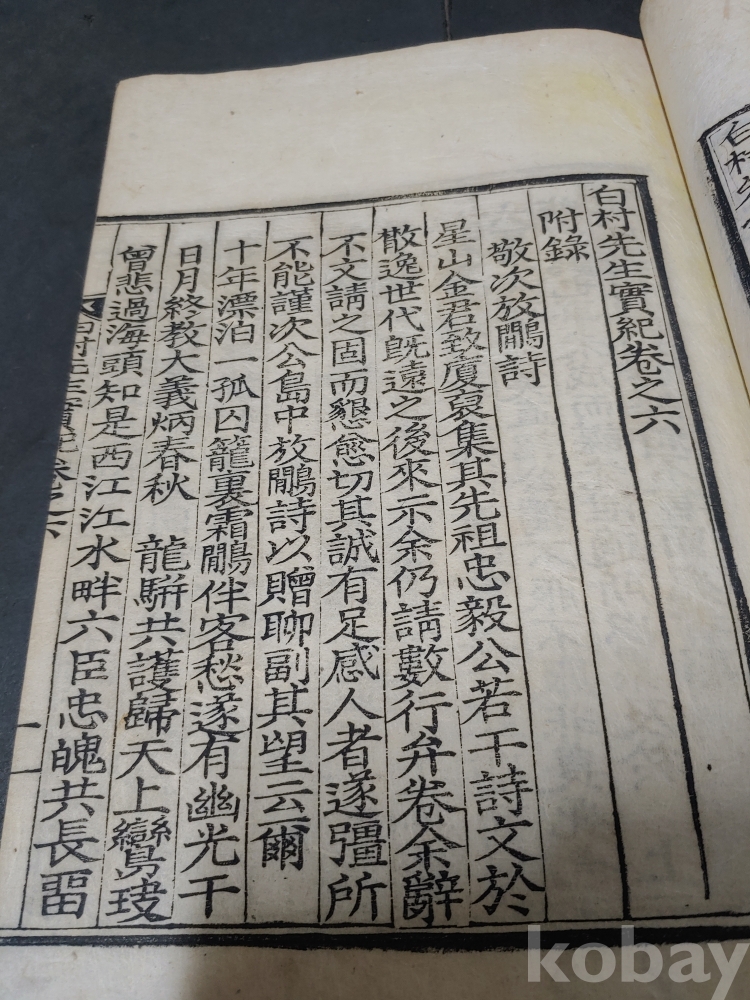 白村先生實紀卷之六
附錄
敬次放鷳詩
星山金君致廈裒集其先祖忠毅公若干詩文於
散逸世代旣遠之後來示余仍請數行弁卷余辭
不文請之固而懇愈切其誠有足感人者遂彊所
不能謹次公島中放鷳詩以贈聊副其望云爾
十年漂泊一孤囚籠裏霜鷳伴客愁遂有幽光干
日月終教大義炳春秋 龍騈共護歸天上鸞
曾悲過海頭知是西江江水畔六臣忠魄共長留
白村先生實紀卷之六
一
白村先生
kobay